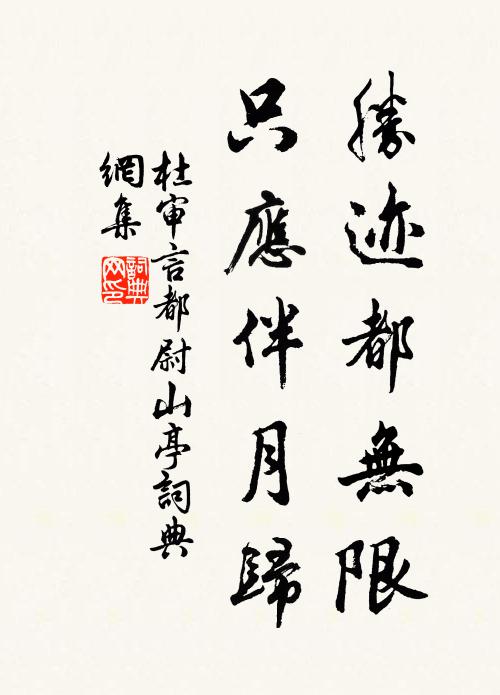 勝迹都無限
只應伴月歸
杜審言都尉山亭詞典
網集
詞典網印